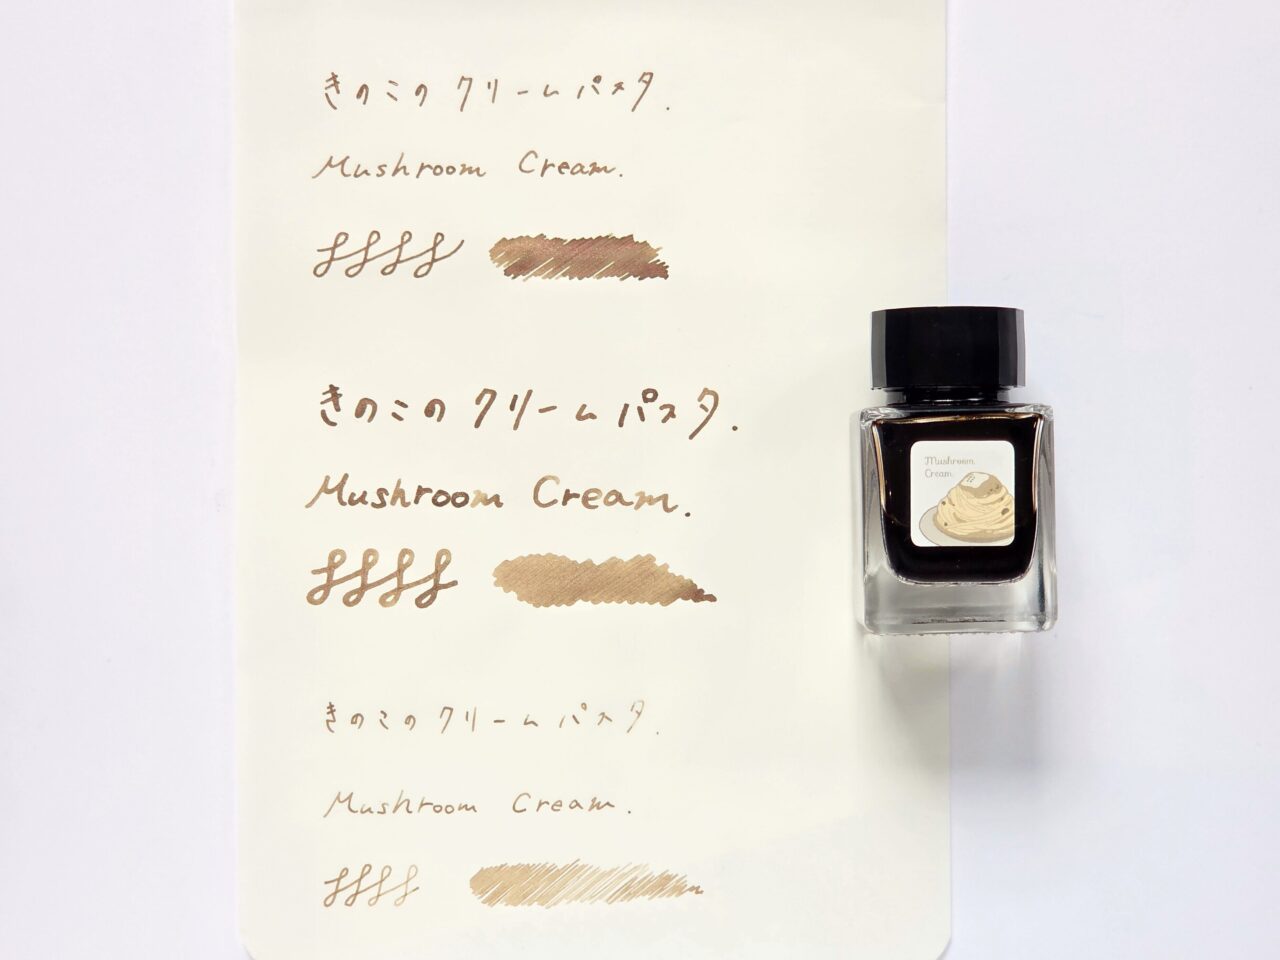 きのこのクリームパスタ.
Mushroom Cream.
きのこのクリームパスタ.
Mushroom Cream.
Mushroom
Cream
きのこのクリームパスタ.
Mushroom Cream.